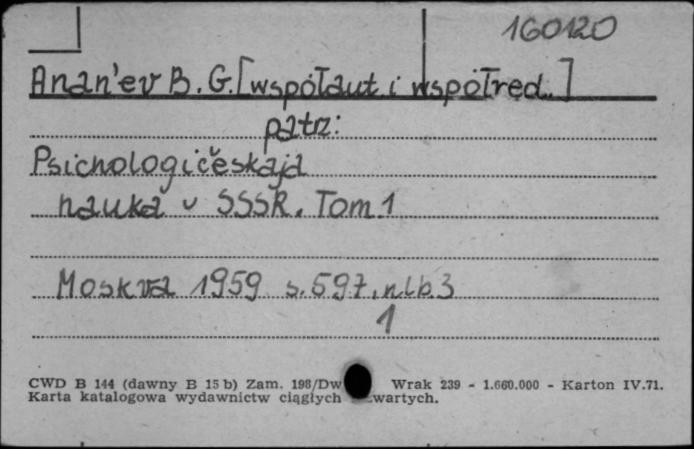 160120
Anan'ev B. G. [współaut. i współred.]
patrz:
Psichologičeskaja
nauka v SSSR. Tom 1
Moskva 1959 s. 597, nlb. 3
1
CWD B 144 (dawny B 15 b) Zam. 198/Dw Wrak 239 - 1.660.000 - Karton IV.71.
Karta katalogowa wydawnictw ciągłych zwartych.